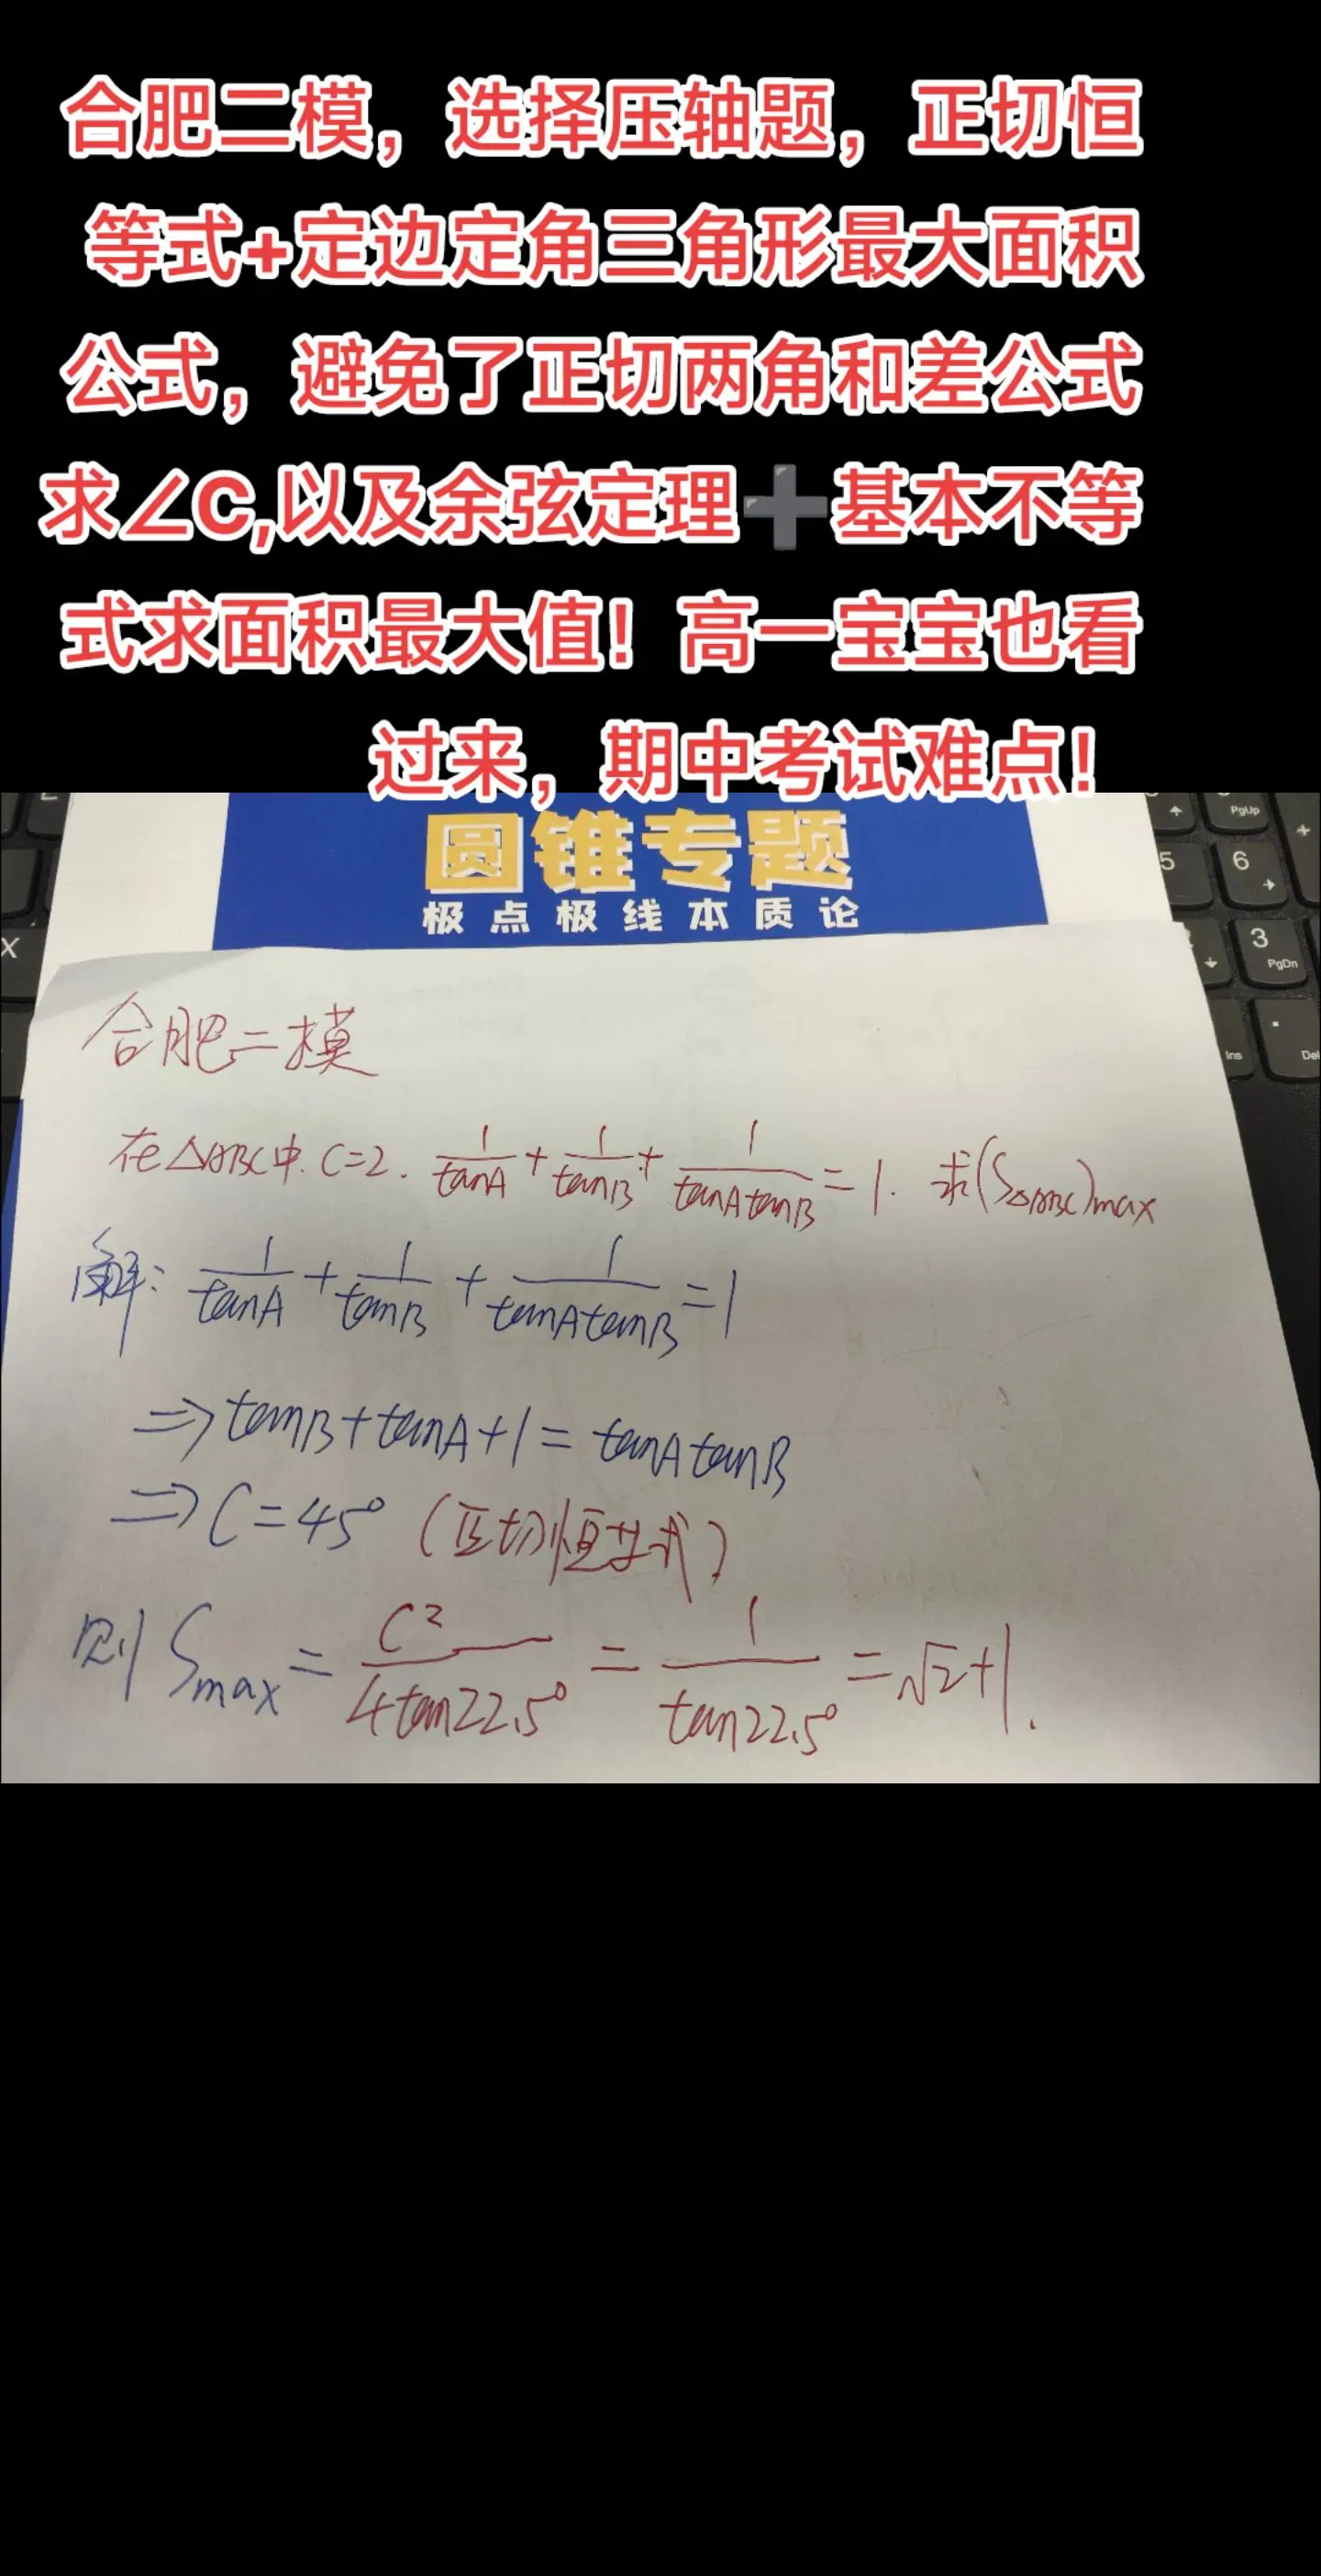 合肥二模，选择压轴题，正切恒
等式+定边定角三角形最大面积
公式，避免了正切两角和差公式
求∠C,以及余弦定理➕基本不等
式求面积最大值！高一宝宝也看
过来，期中考试难点！
圆锥专题
极点极线本质论
PgUp
5
6
+
X
3
PgDn
Ins
.
Del
合肥二模
在△ABC中. C=2. 1/tanA + 1/tanB + 1/tanAtanB = 1. 求(S△ABC)max
解: 1/tanA + 1/tanB + 1/tanAtanB = 1
⇒ tanB+tanA+1 = tanAtanB
⇒ C=45° (正切恒等式)
则 Smax = C²/4tan22.5° = 1/tan22.5° = √2+1.